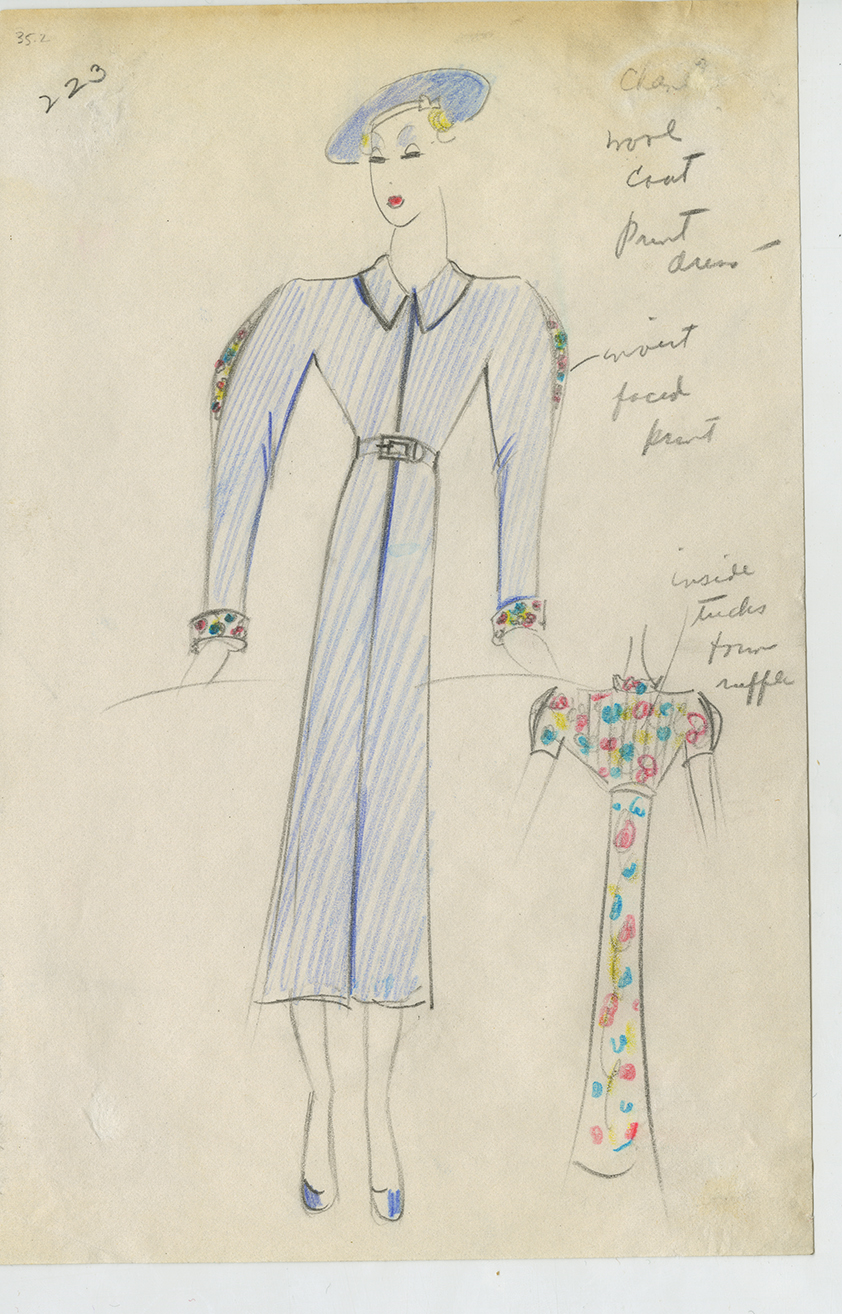 35.2
223
wool
coat
print
dress -
invert
faced
print
inside
tucks
form
ruffle